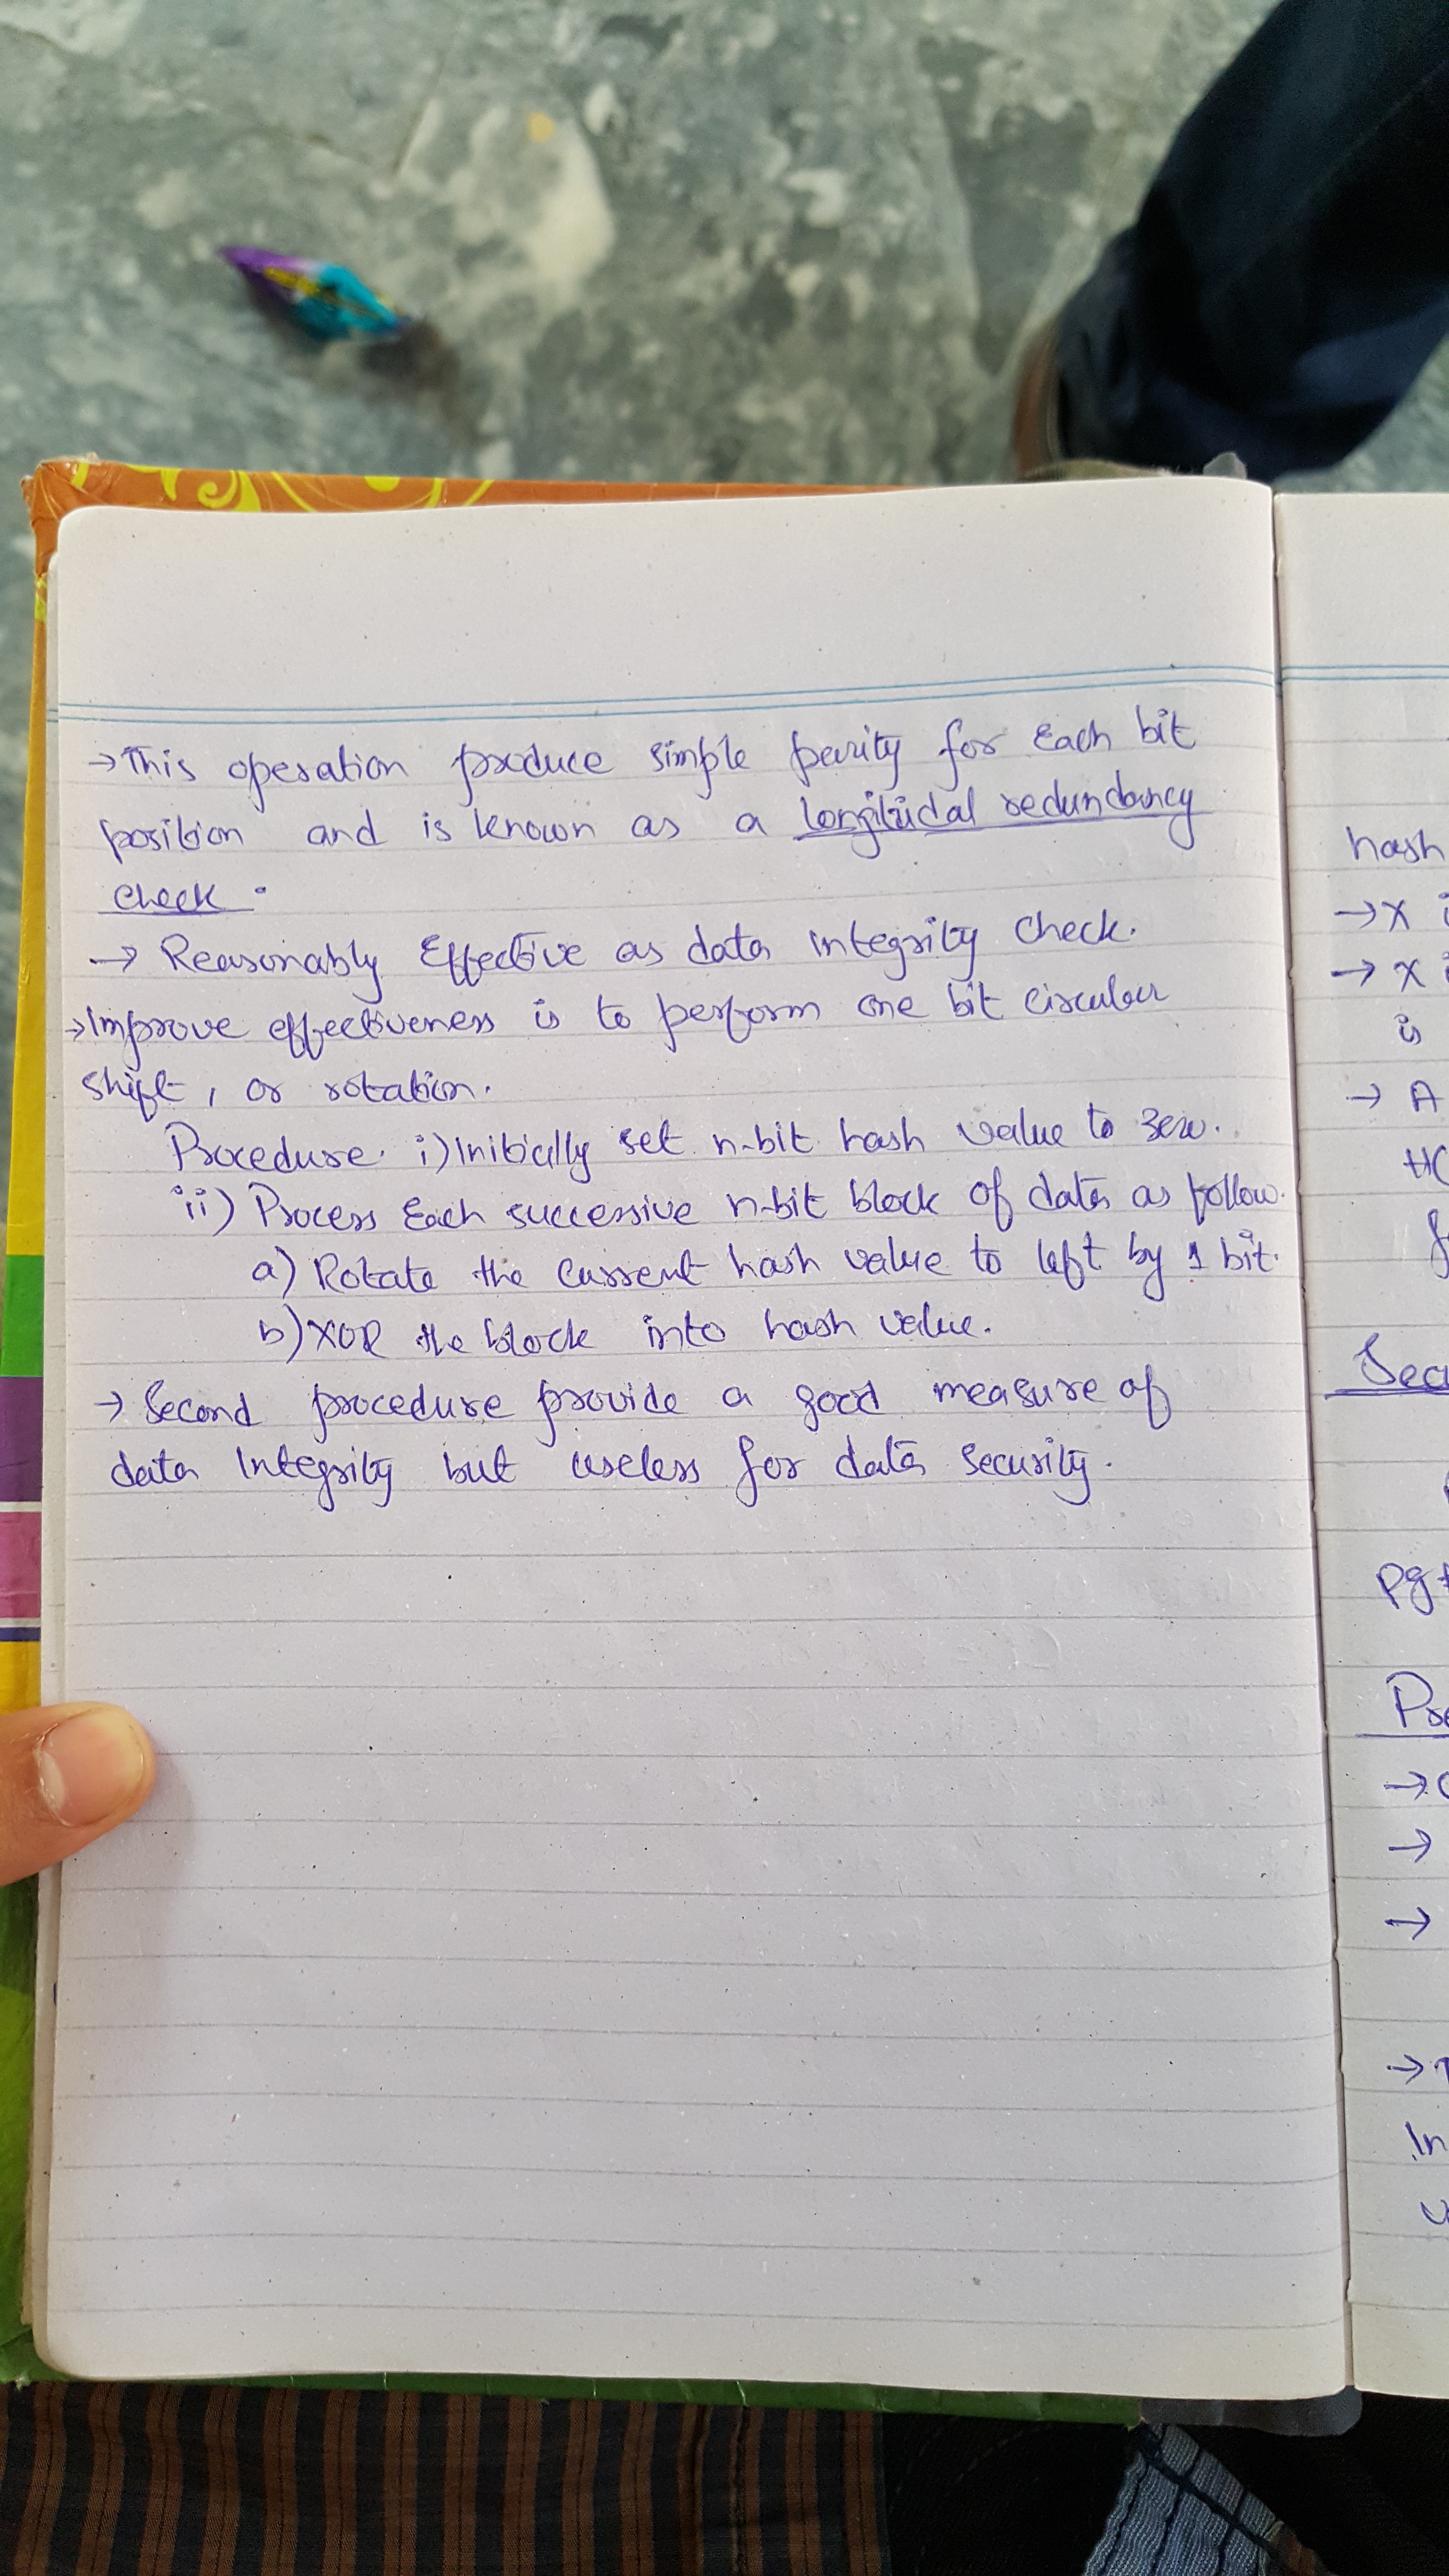 →This operation produce simple parity for Each bit
position and is known as a longitudal redundancy
check.
→ Reasonably Effective as data integrity check.
→Improve effectiveness is to perform one bit circular
shift, or rotation.
Procedure. i) Initially set n-bit hash value to zero.
ii) Process Each successive n-bit block of data as follow.
a) Rotate the current hash value to left by 1 bit.
b) XOR the block into hash value.
→ Second procedure provide a good measure of
data Integrity but useless for data security.
hash
→ X
→ X
is
→ A
pg
→
→
→
→
In